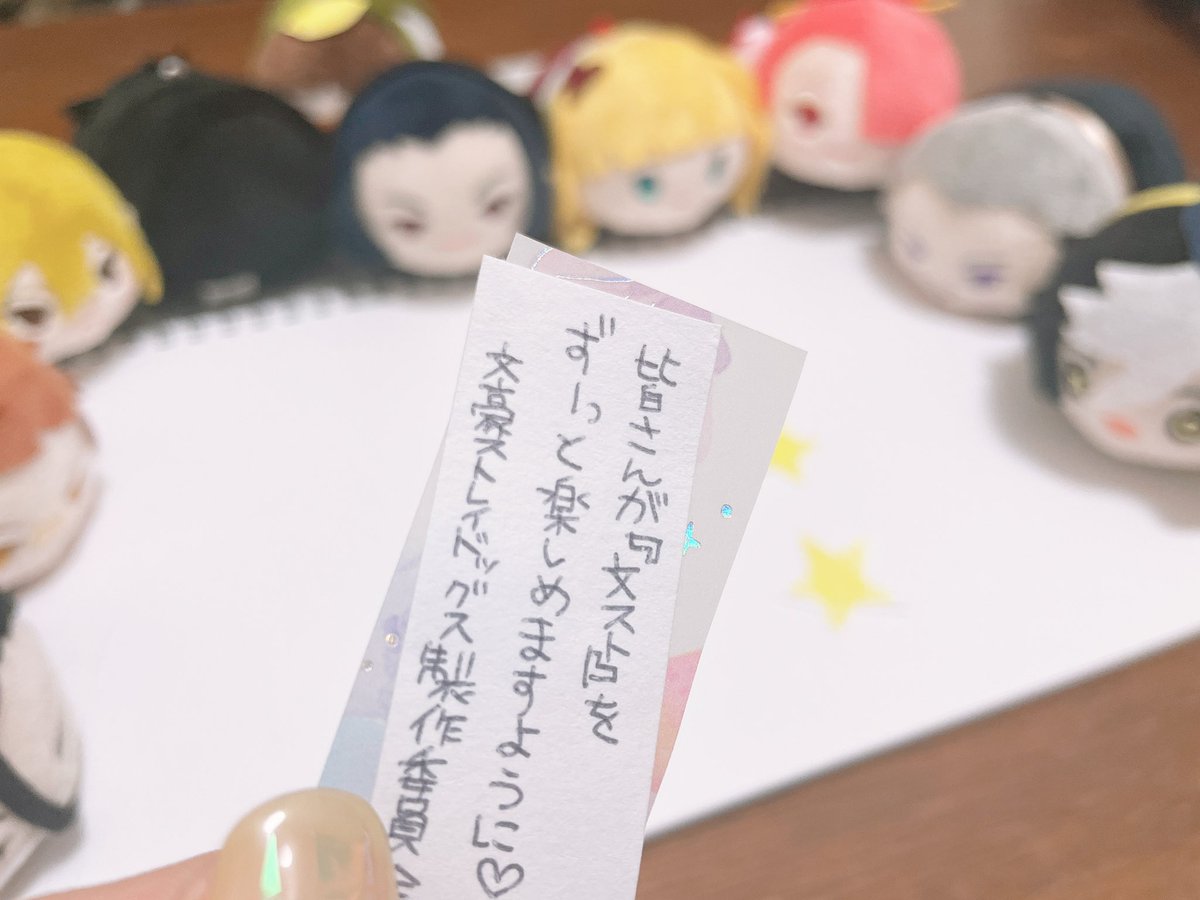 皆さんが『文スト』を
ずーっと楽しめますように♡
文豪ストレイドッグス製作委員